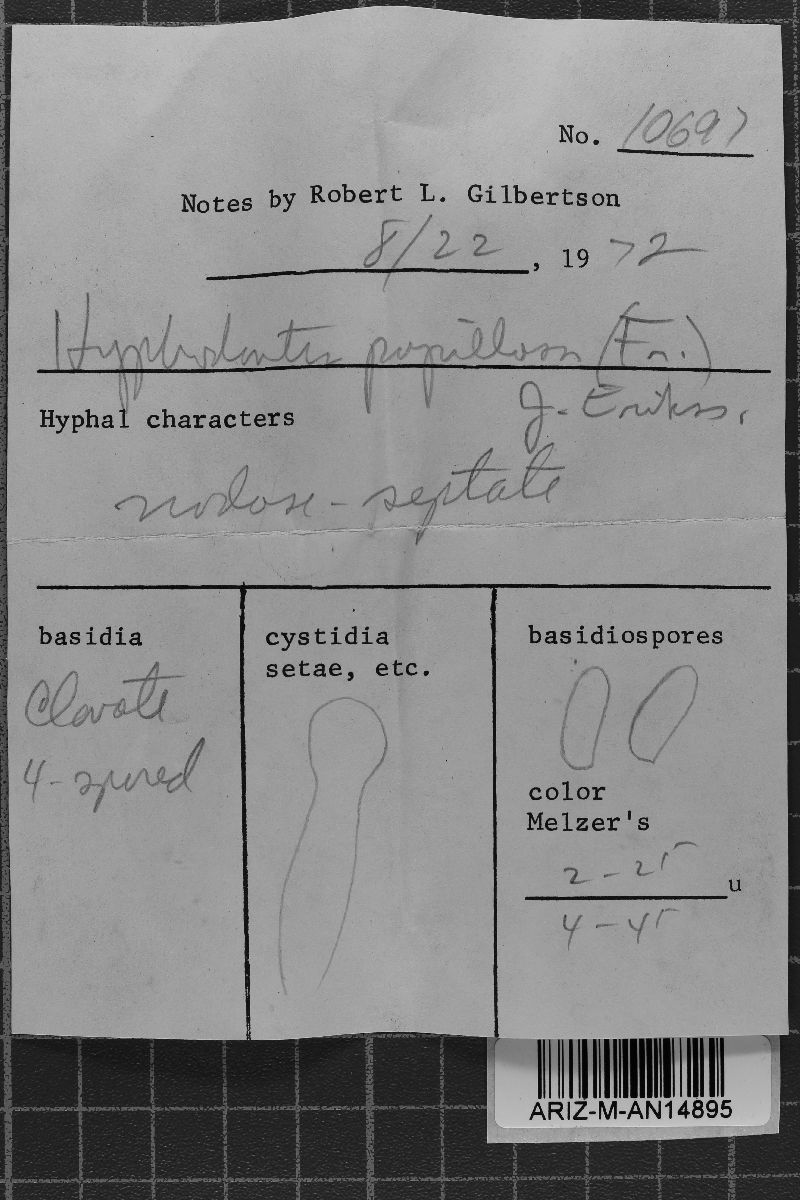 No. 10697
Notes by Robert L. Gilbertson
8/22, 1972
Hyphodontia papillosa (Fr.)
J. Erikss.
Hyphal characters
nodose-septate
basidia
Clavate
4-spored
cystidia
setae, etc.
basidiospores
color
Melzer's
2-25 u
4-45
ARIZ-M-AN14895